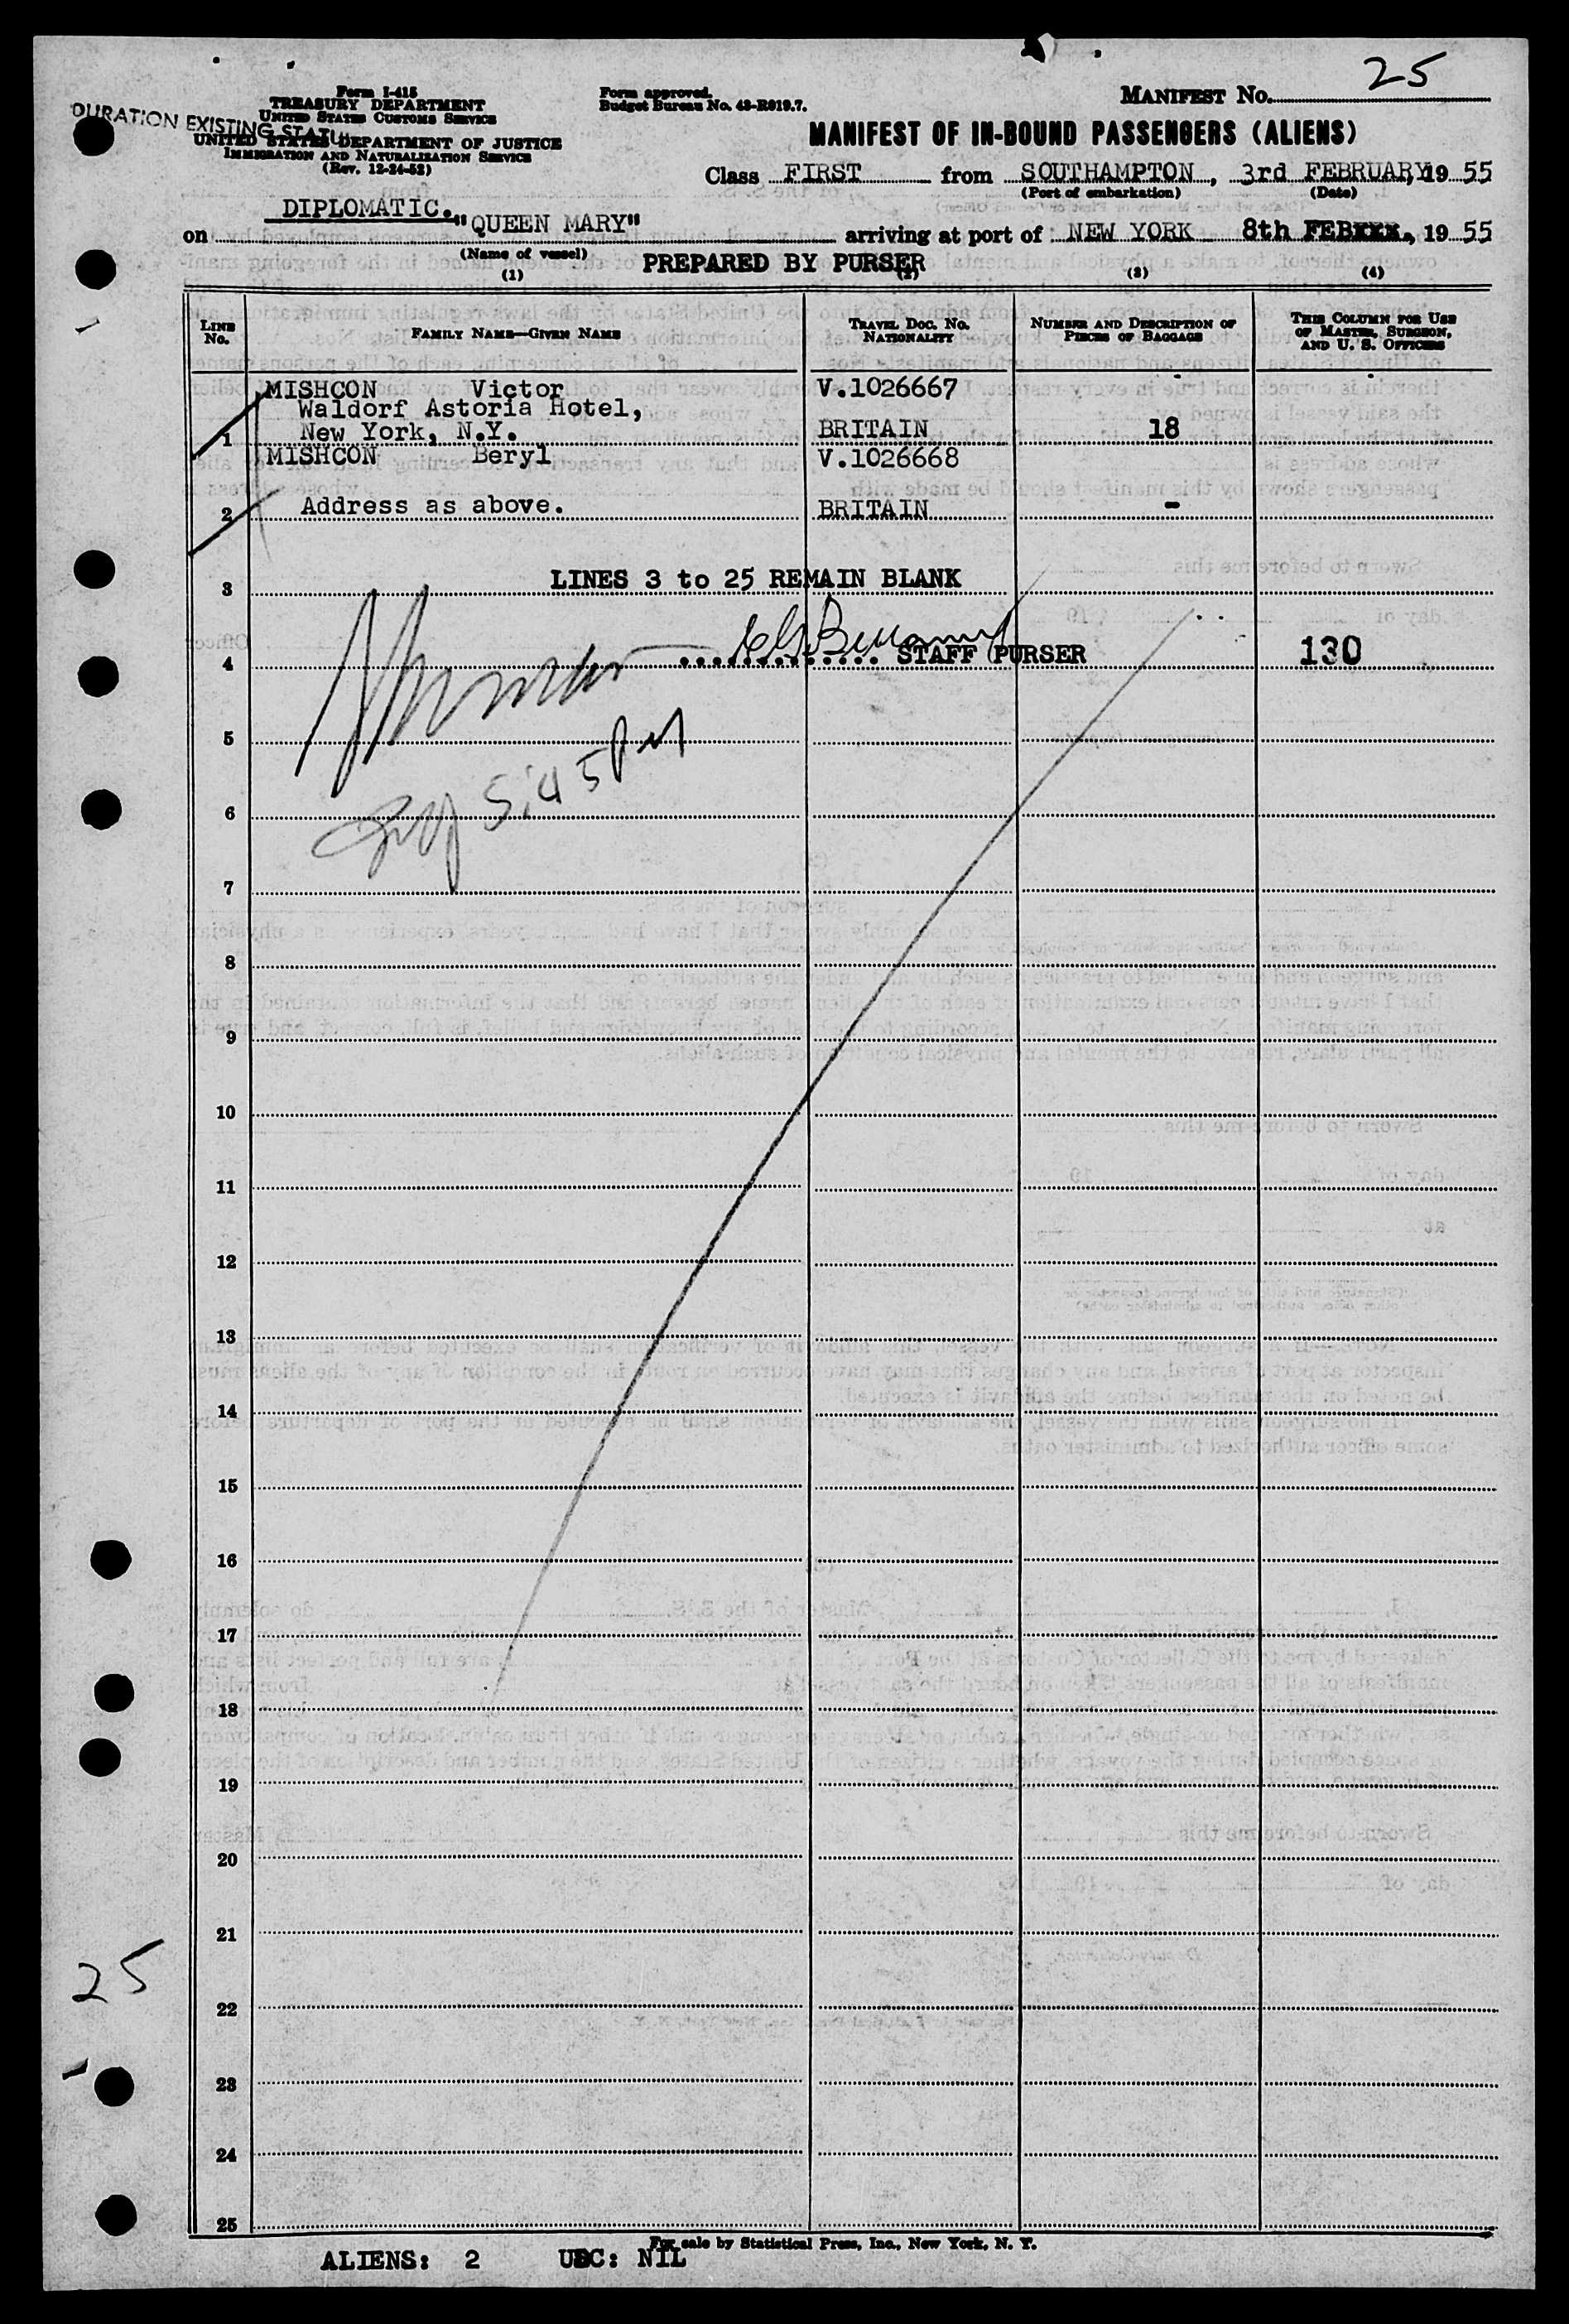 25
Form I-415
TREASURY DEPARTMENT
UNITED STATES CUSTOMS SERVICE
DURATION EXISTING STATUS
UNITED STATES DEPARTMENT OF JUSTICE
IMMIGRATION AND NATURALIZATION SERVICE
(Rev. 12-24-52)
Form approved.
Budget Bureau No. 43-R019.7.
MANIFEST No.
MANIFEST OF IN-BOUND PASSENGERS (ALIENS)
Class FIRST from SOUTHAMPTON, 3rd FEBRUARY, 19 55
(Port of embarkation) (Date)
DIPLOMATIC.
on "QUEEN MARY" arriving at port of NEW YORK 8th FEB., 19 55
(Name of vessel)
PREPARED BY PURSER
(1) (2) (3) (4)
LINE No. FAMILY NAME—GIVEN NAME TRAVEL DOC. NO. NATIONALITY NUMBER AND DESCRIPTION OF PIECES OF BAGGAGE THIS COLUMN FOR USE OF MASTER, SURGEON, AND U. S. OFFICERS
MISHCON Victor V.1026667
Waldorf Astoria Hotel,
1 New York, N.Y. BRITAIN 18
MISHCON Beryl V.1026668
2 Address as above. BRITAIN -
3 LINES 3 to 25 REMAIN BLANK
4 STAFF PURSER 130
5
5:45 PM
6
7
8
9
10
11
12
13
14
15
16
17
18
19
20
21
25
22
23
24
25
For sale by Statistical Press, Inc., New York, N. Y.
ALIENS: 2 USC: NIL